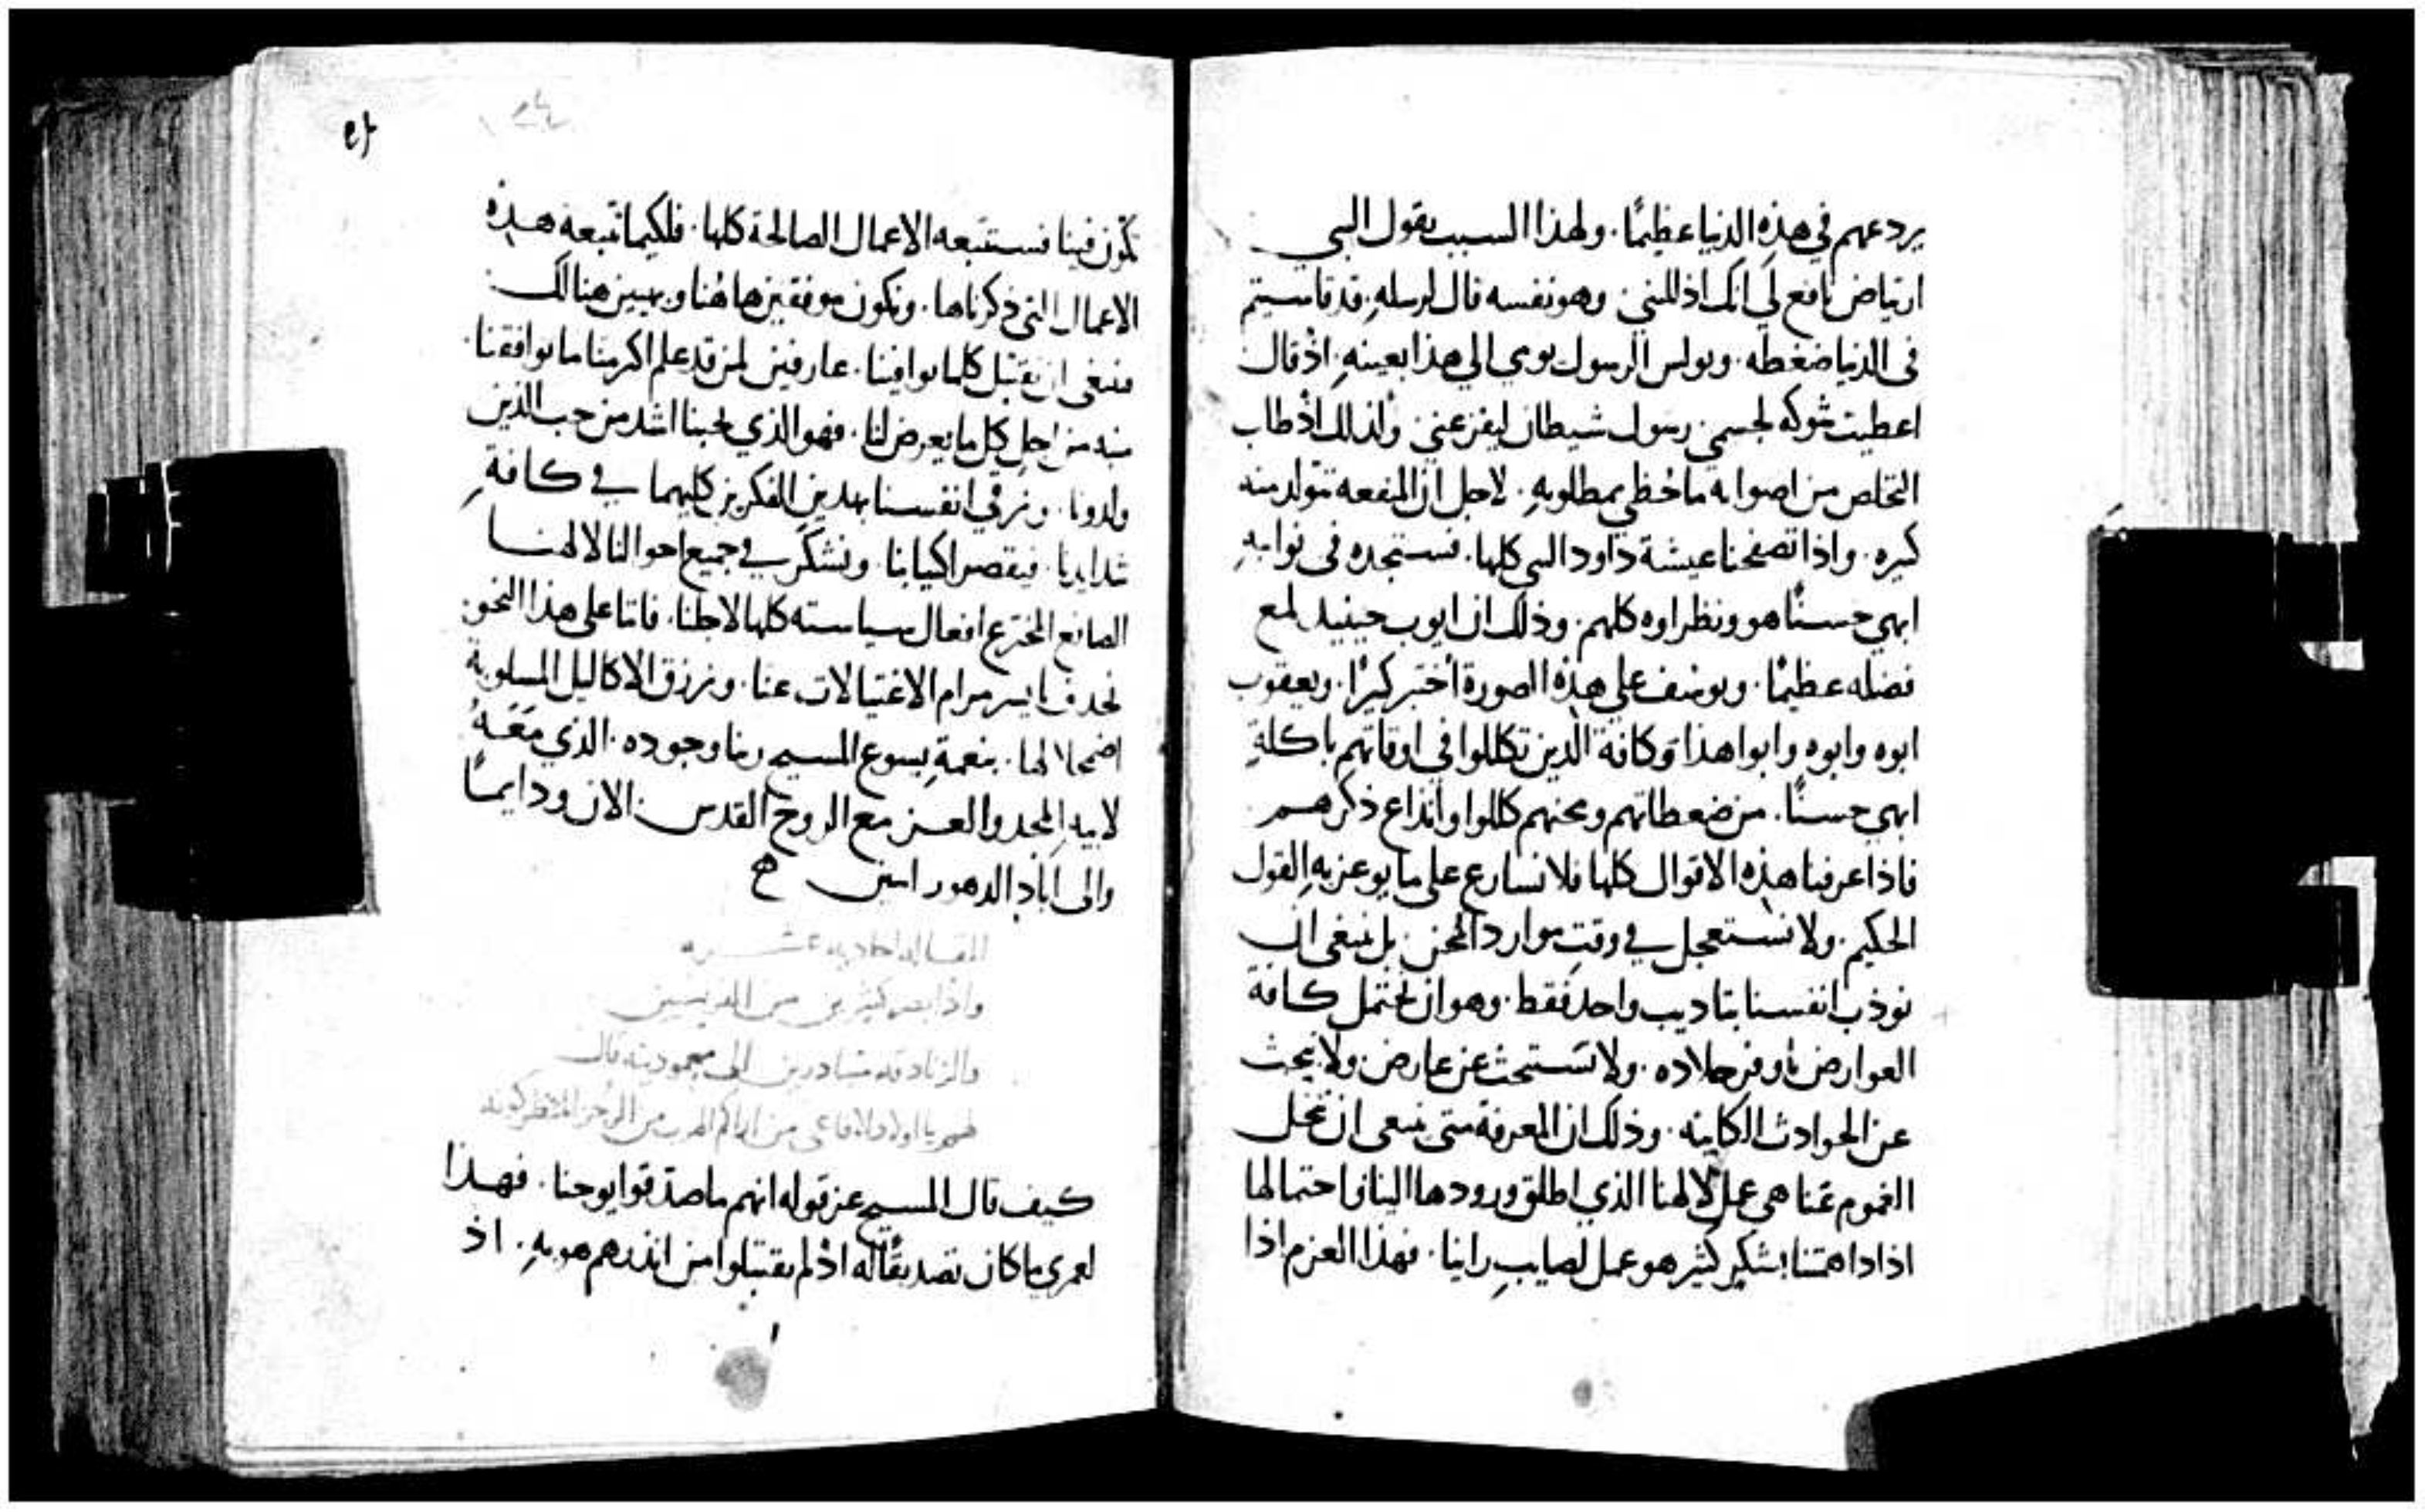 يردعهم في هذه الدنيا عظيمًا. ولهذا السبب يقول النبي
ارتياض نافع لي انك اذللتني وهو نفسه قال لرسله. قد قاسيتم
في الدنيا ضغطه. وبولس الرسول يومي الى هذا بعينه. اذ قال
اعطيت شوكه لجسمي رسول شيطان ليفزعني ولذلك اذ طلب
التخلص من اصوابه ما حظي بمطلوبه. لاجل ان المنفعه تتولد منه
كبيره. واذا تصفحنا عيشة داود النبي كلها. نستجده في نوايبه
ابهي حسنًا هو ونظراوه كلهم. وذلك ان ايوب حينيد لمع
فضله عظيمًا. ويوسف على هذه الصورة اختبر كبيرًا. ويعقوب
ابوه وابوه وابوا هذا وكافة الذين تكللوا في اوقاتهم باكلة
ابهي حسنًا. من ضغطاتهم ومحنهم كللوا وانذاع ذكرهم
فاذا عرفنا هذه الاقوال كلها فلا نسارع على ما يوعز به القول
الحكيم. ولا نستعجل في وقت موارد المحن بل ينبغي ان
نوذب انفسنا بتاديب واحد فقط. وهو ان نحتمل كافة
العوارض باوفر جلاده. ولا نستحث عن عارض ولا نبحث
عن الحوادث الكاينه. وذلك ان المعرفة متى ينبغي ان تنحل
الغموم عنا هى عمل لالهنا الذي اطلق ورودها الينا واحتمالها
اذا داهمتنا بشكر كثير هو عمل لصايب راينا. فهذا العزم اذا
تكون فينا نستتبعه الاعمال الصالحة كلها. فلكيما تتبعه هذه
الاعمال التي ذكرناها. ونكون موفقين هاهنا وبهيين هنالك
فينبغي ان نقتبل كلما يوافينا. عارفين لمن قد علم اكثر منا ما يوافقنا
منه من اجل كل ما يعرض لنا. فهو الذي يحبنا اشد من حب الذين
ولدونا. ونرقي انفسنا بهدين الفكرين كليهما في كافة
شدايدنا. فيقصر اكيابنا. ونشكر في جميع احوالنا لالهنا
الصانع المخترع افعال سياسته كلها لاجلنا. فاننا على هذا النحو
نحدف بايسر مرام الاغتيالات عنا. ونرزق الاكاليل المسلوبة
اضمحلالها. بنعمة يسوع المسيح ربنا وجوده. الذي معه
لابيه المجد والعز مع الروح القدس الان ودايمًا
والى اباد الدهور امين
المقاله الحاديه عشره
واذ ابصر كثيرين من الفريسين
والزنادقه متبادرين الى معموديته قال
لهم يا اولاد الافاعي من اراكم الهرب من الرجز
كيف قال المسيح عن قوله انهم ما صدقوا يوحنا. فهذا
لعمري ما كان تصديقًا له اذ لم يقتبلوا من انذرهم هو به. اذ